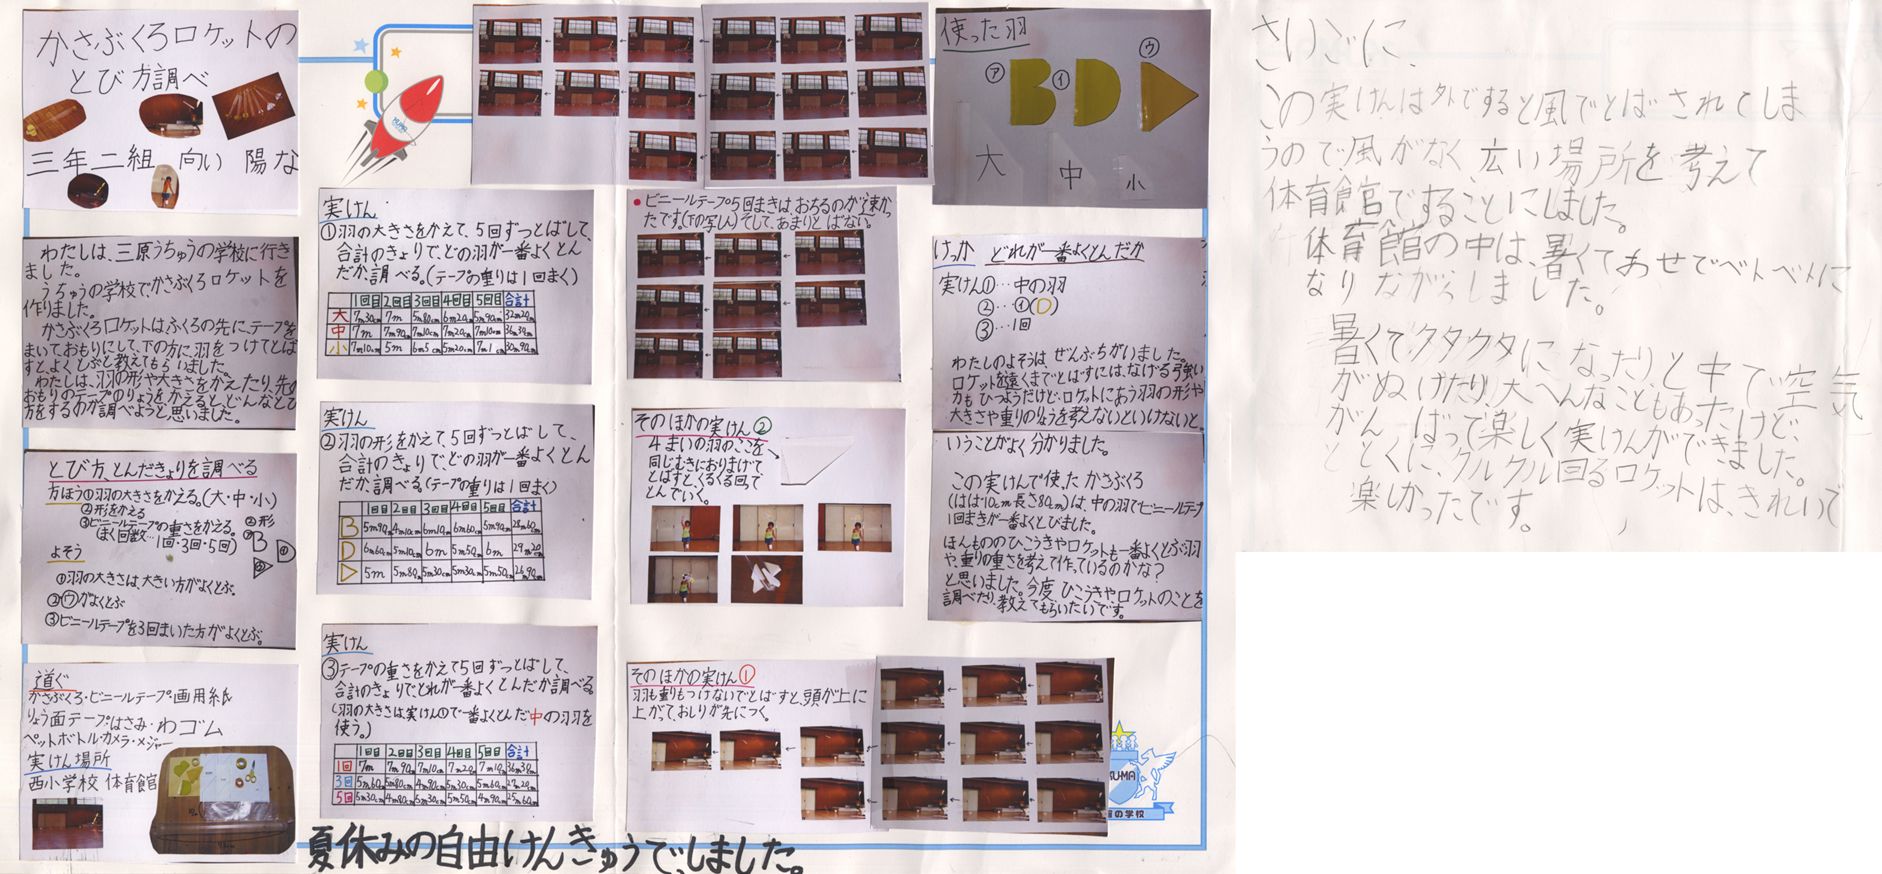 かさぶくろロケットの
とび方調べ
三年二組 向い 陽な
わたしは、三原うちゅうの学校に行き
ました。
うちゅうの学校で、かさぶくろロケットを
作りました。
かさぶくろロケットはふくろの先に、テープを
まいて、おもりにして、下の方に、羽をつけてとば
すと、よくとぶと教えてもらいました。
わたしは、羽の形や大きさをかえたり、先の
おもりのテープのりょうをかえると、どんなとび
方をするのか調べようと思いました。
とび方、とんだきょりを調べる
方ほう①羽の大きさをかえる。(大・中・小)
②形をかえる
③ビニールテープの重さをかえる。
(まく回数…1回・3回・5回)
②形
㋐B
㋑D
よそう
①羽の大きさは、大きい方がよくとぶ。
②㋒がよくとぶ
③ビニールテープを3回まいた方がよくとぶ。
道ぐ
かさぶくろ・ビニールテープ・画用紙
りょう面テープ・はさみ・わゴム
ペットボトル・カメラ・メジャー
実けん場所
西小学校 体育館
実けん
①羽の大きさをかえて、5回ずつとばして、
合計のきょりで、どの羽が一番よくとん
だか調べる。(テープの重りは1回まく)
1回目 2回目 3回目 4回目 5回目 合計
大 7m30cm 7m 5m80cm 6m20cm 5m90cm 32m20cm
中 7m 7m90cm 7m10cm 7m20cm 7m10cm 36m30cm
小 7m10cm 5m 6m5cm 5m20cm 7m1cm 30m90cm
実けん
②羽の形をかえて、5回ずつとばして、
合計のきょりで、どの羽が一番よくとん
だか、調べる。(テープの重りは1回まく)
1回目 2回目 3回目 4回目 5回目 合計
B 5m90cm 4m10cm 6m10cm 6m60cm 5m90cm 28m60cm
D 6m60cm 5m10cm 6m 5m50cm 6m 29m20cm
5m 5m80cm 5m30cm 5m30cm 5m50cm 26m90cm
実けん
③テープの重さをかえて5回ずつとばして、
合計のきょりで、どれが一番よくとんだか調べる。
(羽の大きさは、実けん①で一番よくとんだ中の羽を
使う。)
1回目 2回目 3回目 4回目 5回目 合計
1回 7m 7m90cm 7m10cm 7m20cm 7m10cm 36m30cm
3回 5m60cm 5m80cm 4m90cm 5m30cm 5m60cm 27m20cm
5回 5m30cm 4m80cm 5m30cm 5m50cm 4m90cm 25m60cm
夏休みの自由けんきゅうでしました。
ビニールテープ5回まきは、おちるのが速かっ
たです。(下の写しん)そして、あまりとばない。
そのほかの実けん②
4まいの羽のここを
同じむきにおりまげて
とばすと、くるくる回って
とんでいく。
そのほかの実けん①
羽も重りもつけないでとばすと、頭が上に
上がって、おしりが先につく。
使った羽
㋐
㋑
㋒
大
中
小
けっか どれが一番よくとんだか
実けん①…中の羽
②…㋑(D)
③…1回
わたしのよそうは ぜんぶちがいました。
ロケットを遠くまでとばすには、なげる強い
力もひつようだけど、ロケットにあう羽の形や
大きさや重りのりょうを考えないといけないと
いうことがよく分かりました。
この実けんで使った かさぶくろ
(はは10cm長さ80cm)は、中の羽でビニールテープ
1回まきが一番よくとびました。
ほんもののひこうきやロケットも一番よくとぶ羽
や、重りの重さを考えて作っているのかな?
と思いました。今度、ひこうきやロケットのことを
調べたり、教えてもらいたいです。
さいごに、
この実けんは外ですると風でとばされてしま
うので、風がなく広い場所を考えて
体育館ですることにしました。
体育館の中は、暑くてあせでベトベトに
なりながらしました。
暑くてクタクタになったりと中で空気
がぬけたり、大へんなこともあったけど、
がんばって楽しく実けんができました。
とくに、クルクル回るロケットは、きれいで
楽しかったです。